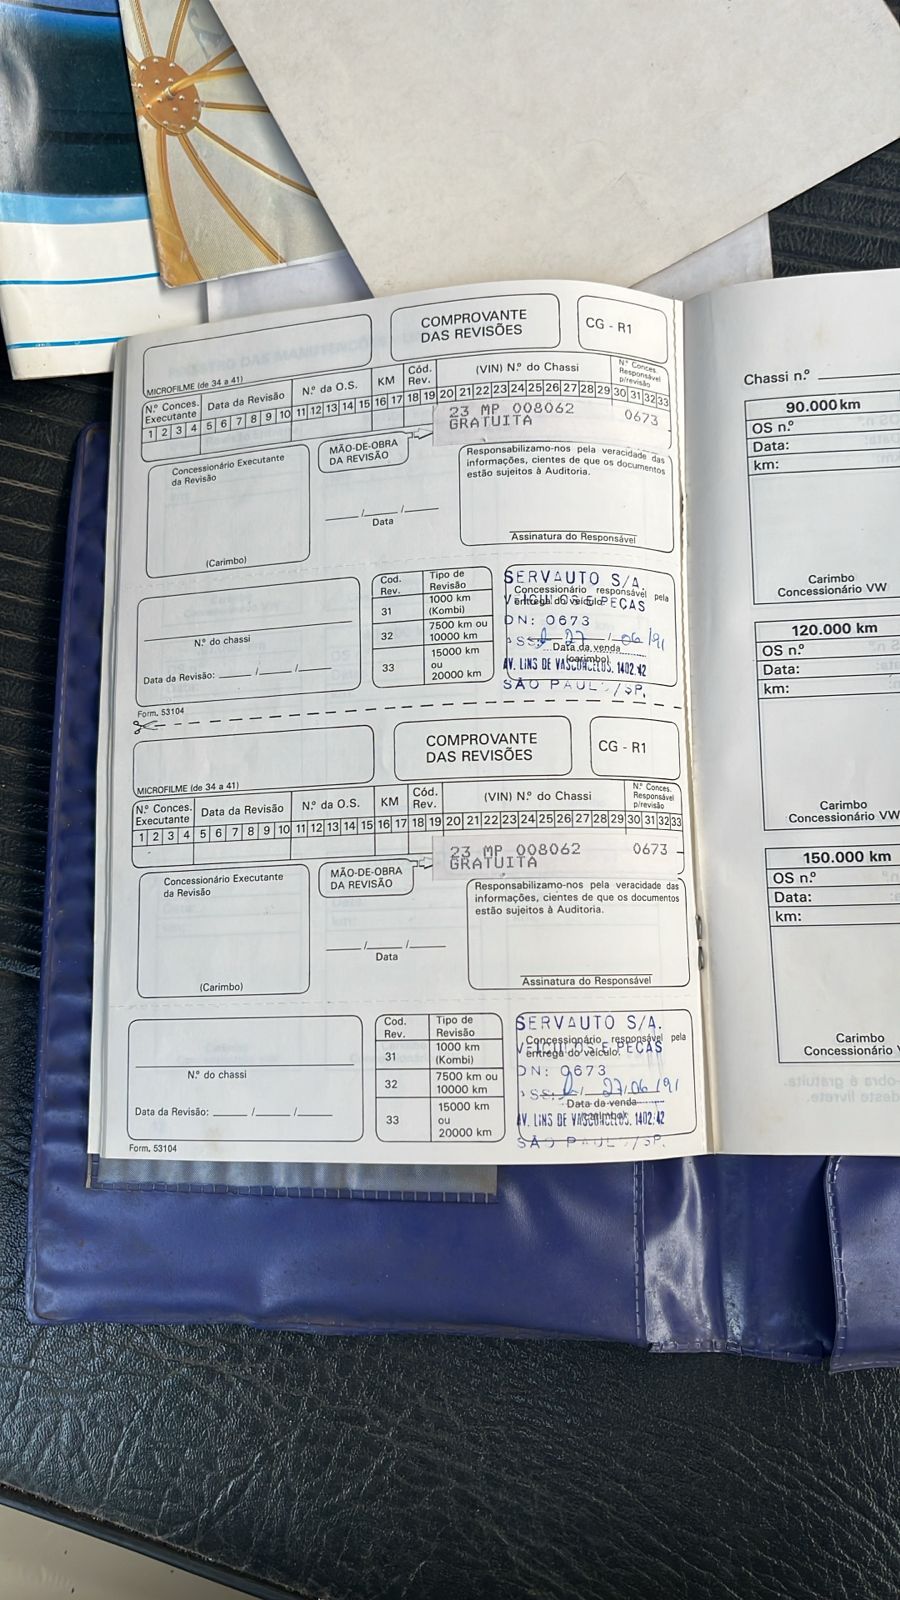 COMPROVANTE
DAS REVISÕES
CG - R1
MICROFILME (de 34 a 41)
N.º Conces.
Executante
Data da Revisão
N.º da O.S.
KM
Cód.
Rev.
(VIN) N.º do Chassi
N.º Conces.
Responsável
p/revisão
1 2 3 4 5 6 7 8 9 10 11 12 13 14 15 16 17 18 19 20 21 22 23 24 25 26 27 28 29 30 31 32 33
23 MP 008062 0673
GRATUITA
MÃO-DE-OBRA
DA REVISÃO
Concessionário Executante
da Revisão
(Carimbo)
___/___/___
Data
Responsabilizamo-nos pela veracidade das
informações, cientes de que os documentos
estão sujeitos à Auditoria.
Assinatura do Responsável
N.º do chassi
Data da Revisão: ___/___/___
Cod.
Rev.
Tipo de
Revisão
31
1000 km
(Kombi)
32
7500 km ou
10000 km
33
15000 km
ou
20000 km
SERVAUTO S/A.
Concessionário responsável pela
VEICULOS E PEÇAS
entrega do veículo.
DN: 0673
27/06/91
Data da venda
(carimbo)
AV. LINS DE VASCONCELOS, 1402.42
SÃO PAULO/SP.
Form. 53104
COMPROVANTE
DAS REVISÕES
CG - R1
MICROFILME (de 34 a 41)
N.º Conces.
Executante
Data da Revisão
N.º da O.S.
KM
Cód.
Rev.
(VIN) N.º do Chassi
N.º Conces.
Responsável
p/revisão
1 2 3 4 5 6 7 8 9 10 11 12 13 14 15 16 17 18 19 20 21 22 23 24 25 26 27 28 29 30 31 32 33
23 MP 008062 0673
GRATUITA
MÃO-DE-OBRA
DA REVISÃO
Concessionário Executante
da Revisão
(Carimbo)
___/___/___
Data
Responsabilizamo-nos pela veracidade das
informações, cientes de que os documentos
estão sujeitos à Auditoria.
Assinatura do Responsável
N.º do chassi
Data da Revisão: ___/___/___
Cod.
Rev.
Tipo de
Revisão
31
1000 km
(Kombi)
32
7500 km ou
10000 km
33
15000 km
ou
20000 km
SERVAUTO S/A.
Concessionário responsável pela
VEICULOS E PEÇAS
entrega do veículo.
DN: 0673
27/06/91
Data da venda
(carimbo)
AV. LINS DE VASCONCELOS, 1402.42
SÃO PAULO/SP.
Form. 53104
Chassi n.º
90.000 km
OS n.º
Data:
km:
Carimbo
Concessionário VW
120.000 km
OS n.º
Data:
km:
Carimbo
Concessionário VW
150.000 km
OS n.º
Data:
km:
Carimbo
Concessionário